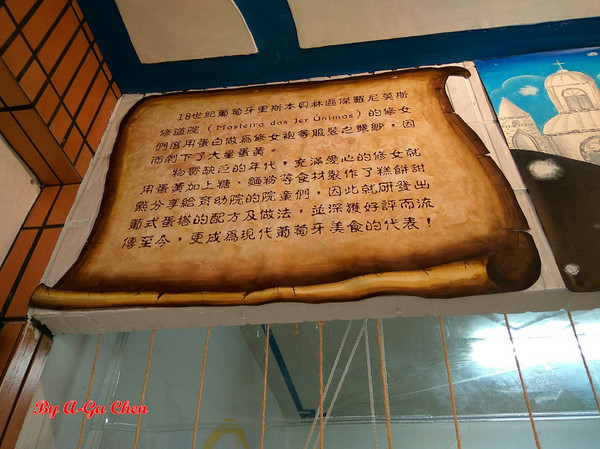 18世紀葡萄牙里斯本貝林區傑羅尼莫斯
修道院（Mosteiro dos Jer Ónimos）的修女
們選用蛋白做為修女袍等服裝之漿紗，因
而剩下了大量蛋黃。
物質缺乏的年代，充滿愛心的修女就
用蛋黃加上糖、麵粉等食材製作了糕餅甜
點分享給育幼院的院童們，因此就研發出
葡式蛋塔的配方及做法，並深獲好評而流
傳至今，更成為現代葡萄牙美食的代表！
By A-Gu Chen